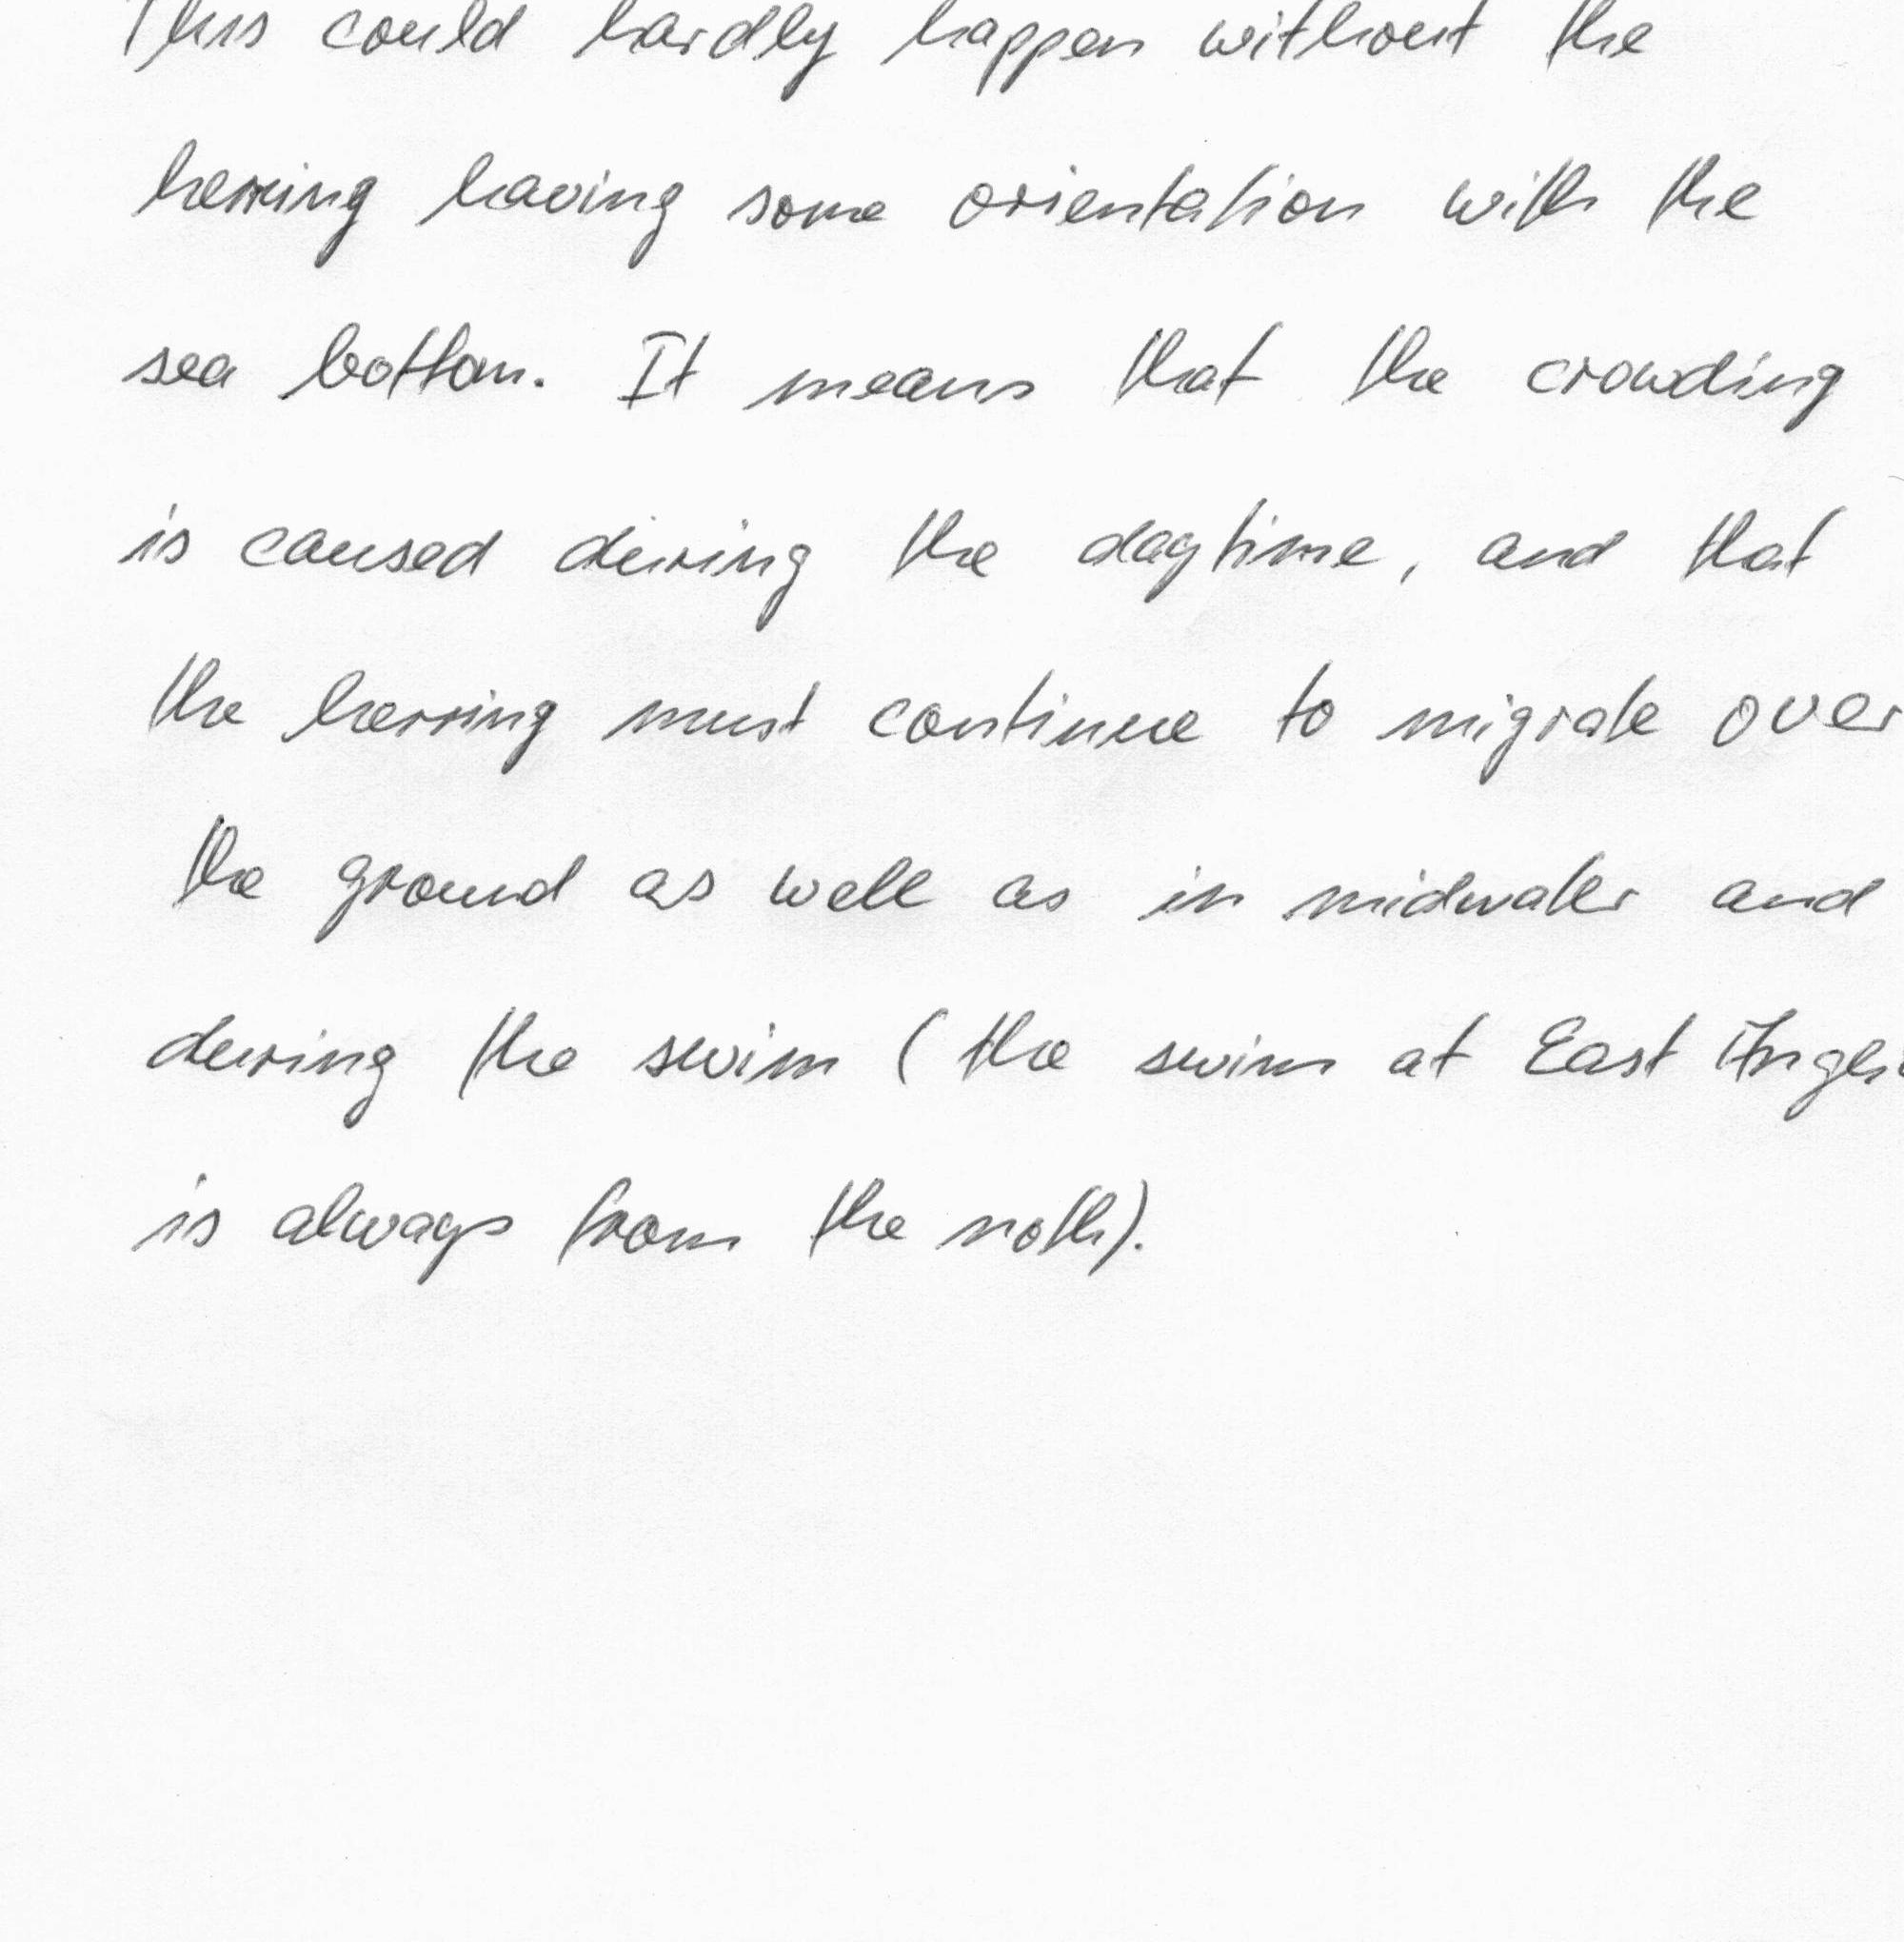 This could hardly happen without the
herring having some orientation with the
sea bottom. It means that the crowding
is caused during the daytime, and that
the herring must continue to migrate over
the ground as well as in midwater and
during the swim (the swim at East Angli
is always from the noth).